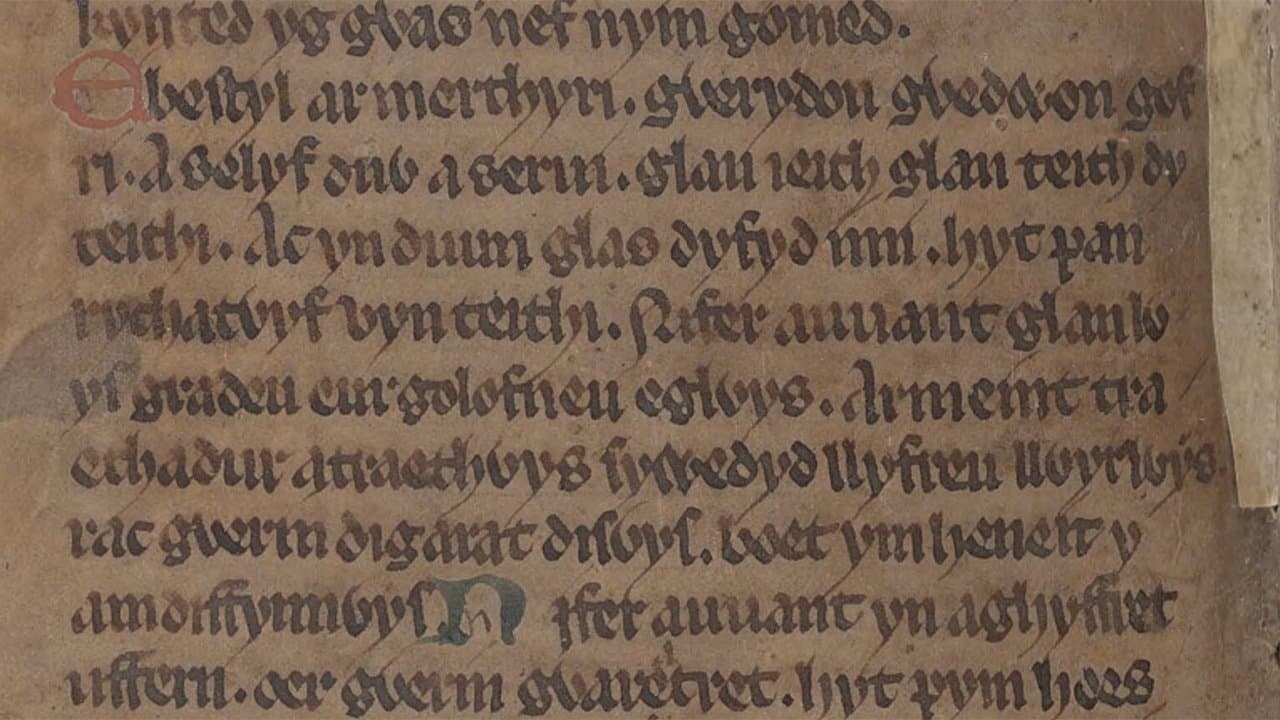 kynted yg gỽas nef nym gomed.
Ebestyl ar merthyri. gỽerydon gỽedỽon gof
ri. A selyf duỽ a serui. glan ieith glan teith dy
teithi. Ac yn duun glas dyfyd imi. hyt pan
rychatỽyf vyn teithi. Nifer auuant glanlỽ
ys graden eur golofneu eglỽys. Ar meint tra
ethadur atraethỽys sywedyd llyfreu llỽyrỽys
rac gỽerin digarat disỽys. boet ym heneit y
amdiffynnỽys. Nifer auuant yn aghyffret
uffern. oer gỽerin gỽaretret. hyt pym hoes